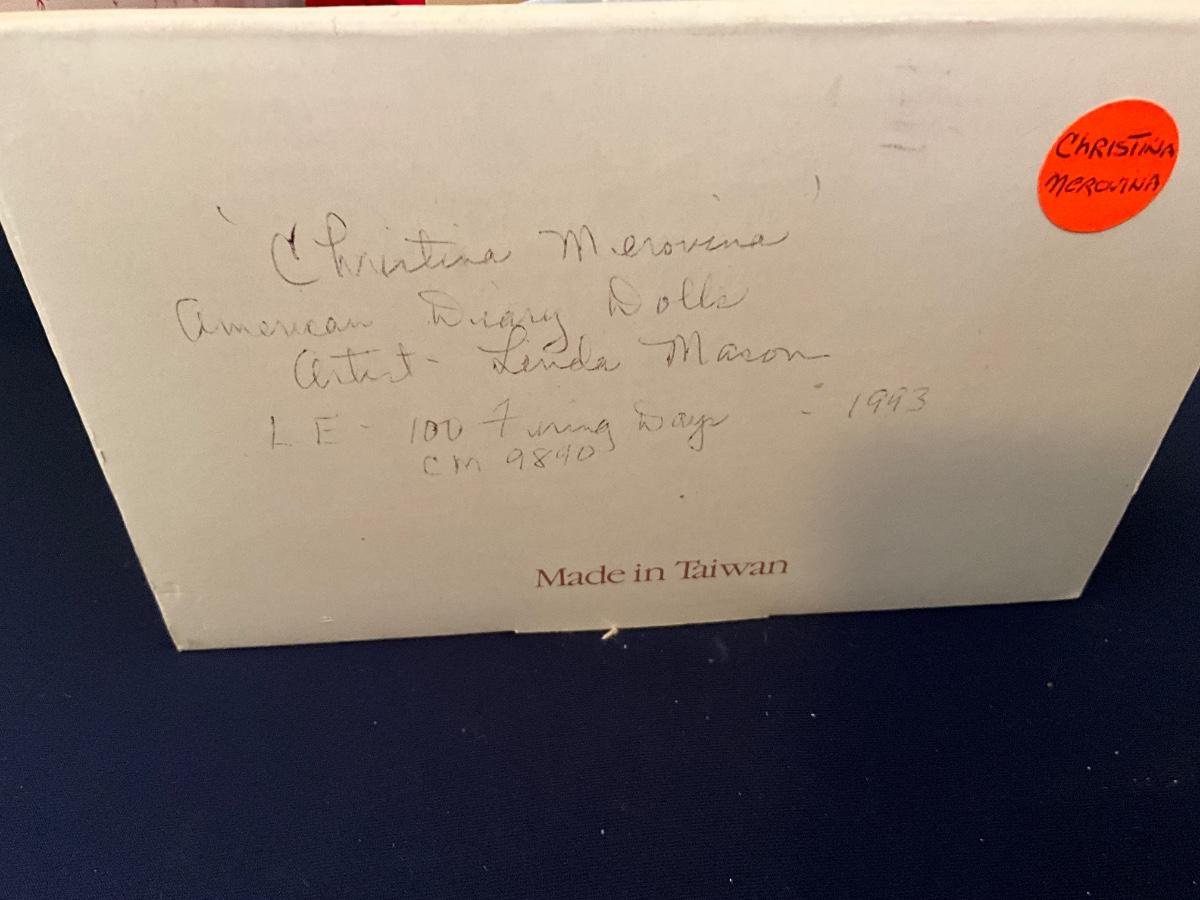 'Christina Merovina'
American Diary Dolls
Artist - Linda Mason
LE - 100 Firing Days - 1993
CM 9890
Made in Taiwan
CHRISTINA
MEROVINA